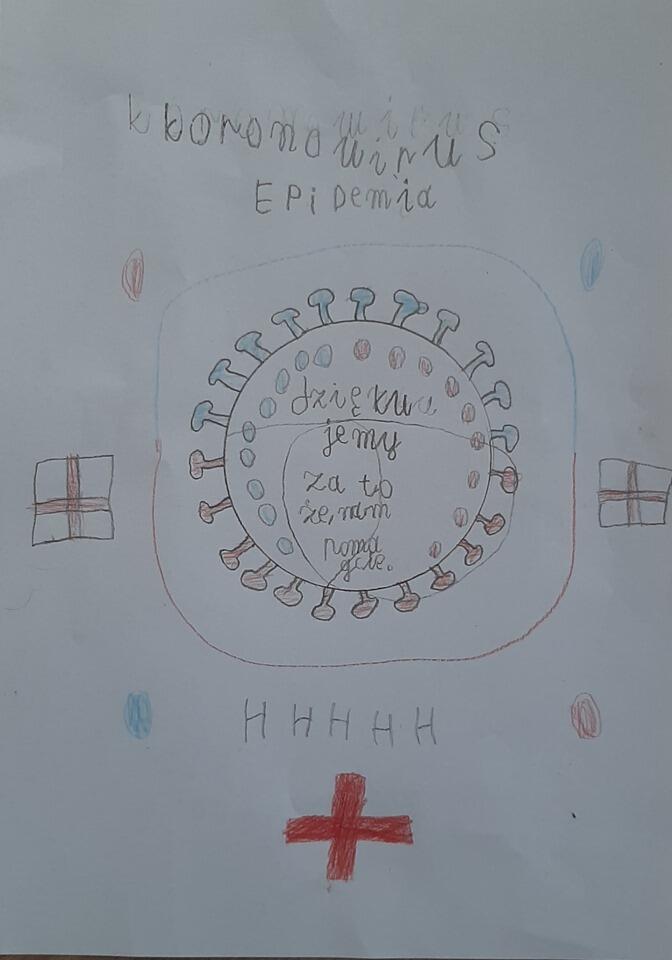 k koronowirus
Epidemia
dzięku
jemy
za to
że, nam
poma
gcie.
H H H H H